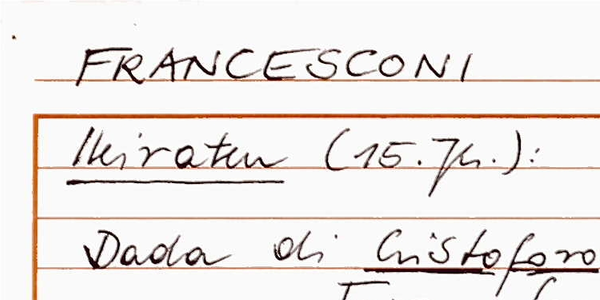 FRANCESCONI
Heiraten (15. Jh.):
Dada di Cristoforo